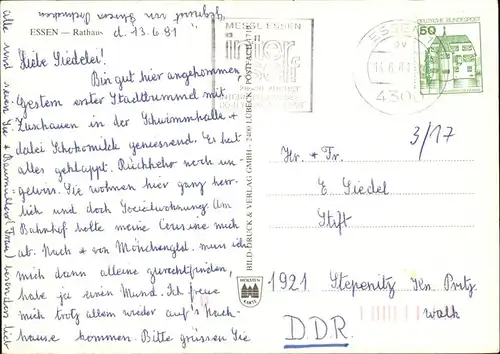 ESSEN — Rathaus d. 13.6.81
Liebe Siedelei!
Bin gut hier angekommen,
Gestern erster Stadtbummel mit
Zuschauen in der Schwimmhalle +
dabei Schokomilch geniessend. Es hat
alles geklappt. Rückkehr noch un-
gewiss. Sie wohnen hier ganz herr-
lich und doch Socialwohnung. Am
Bahnhof holte meine Cousine mich
ab. Nach + von Mönchengld. muss ich
mich dann alleine zurechtfinden,
habe ja einen Mund. Ich freue
mich trotz allem wieder auf's Nach-
hause kommen. Bitte grüssen Sie
alle und seien Sie +
MESSE ESSEN
BILD DRUCK & VERLAG GMBH · 2400 LÜBECK · POSTFACH
HOLSTEN
KARTE
ESSEN
4300
50
DEUTSCHE BUNDESPOST
3/17
Hr. + Fr.
E Siedel
Stift
1921 Stepenitz Krs. Pritz
walk
DDR